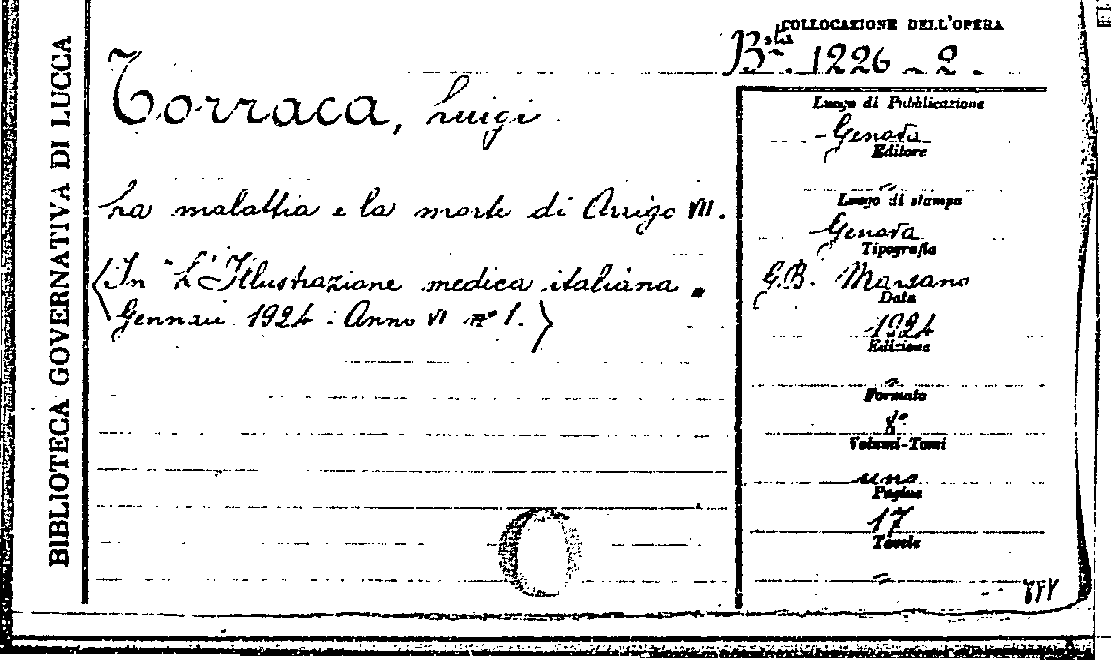 BIBLIOTECA GOVERNATIVA DI LUCCA
COLLOCAZIONE DELL'OPERA
B.ta 1226 - 2.
Torraca, Luigi
La malattia e la morte di Arrigo VII.
(In "L'Illustrazione medica italiana"
Gennaio 1924 - Anno VI nº 1.)
Luogo di Pubblicazione
Genova
Editore
"
Luogo di stampa
Genova
Tipografia
G.B. Marsano
Data
1924
Edizione
"
Formato
8º
Volumi-Tomi
uno
Pagine
17
Tavole
"